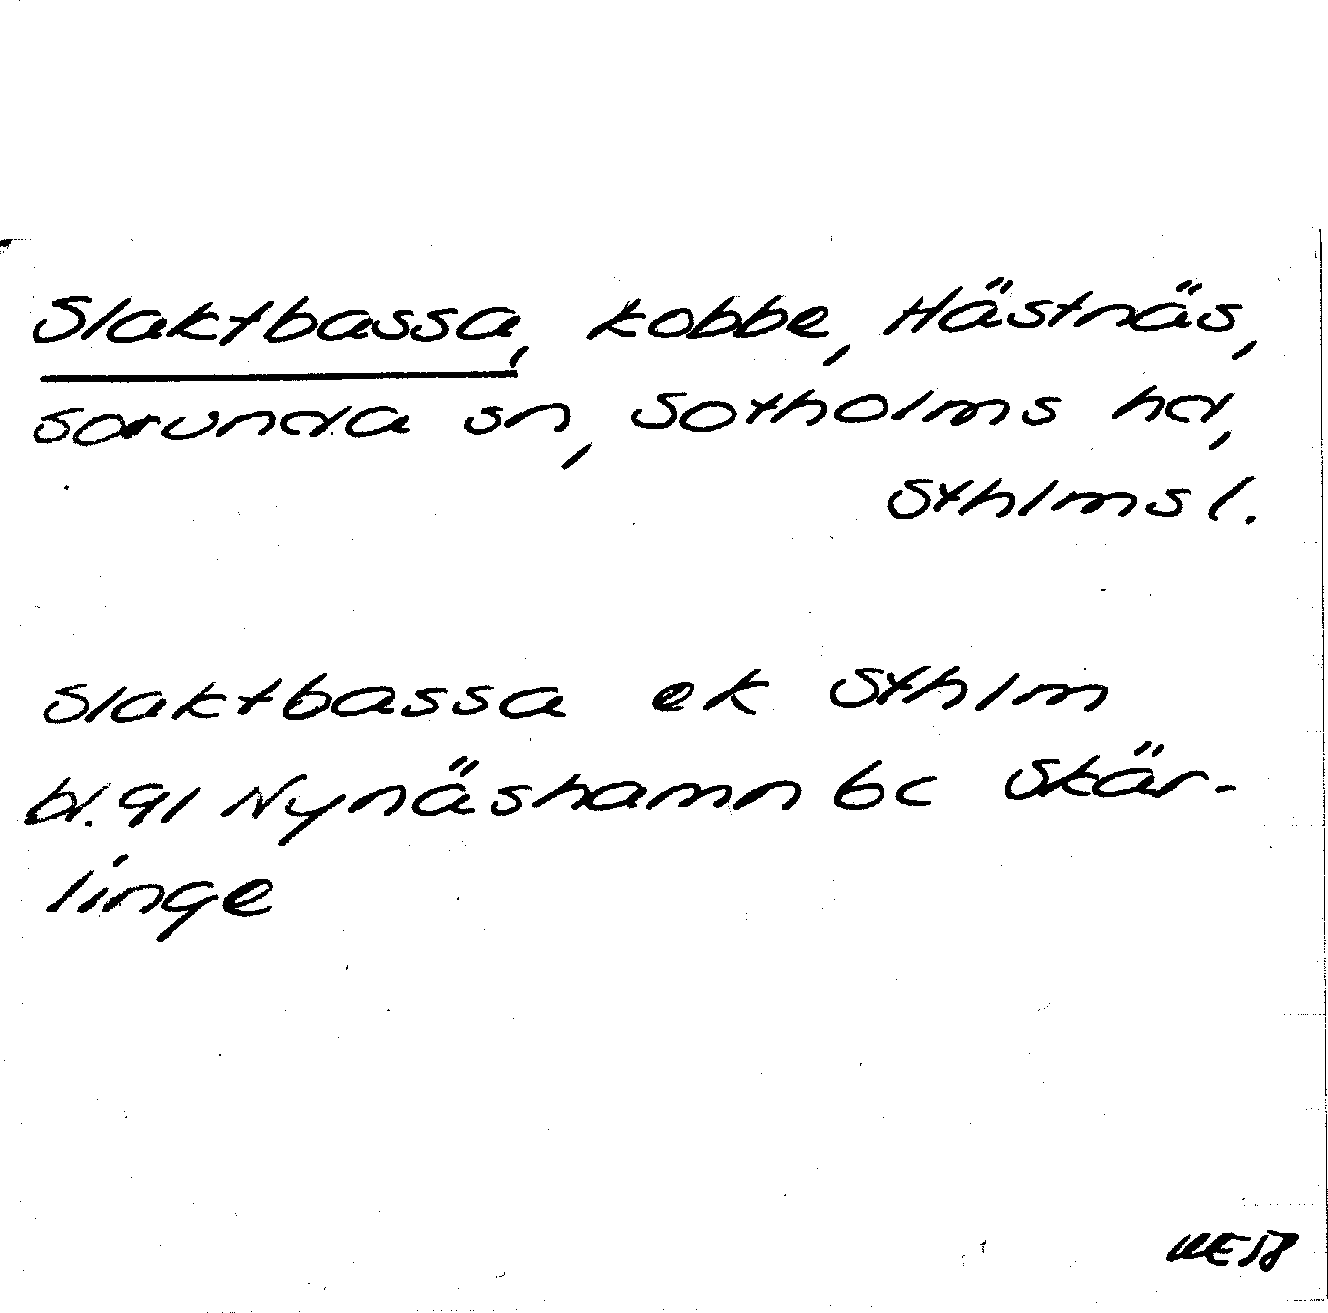 Slaktbassa, kobbe, Hästnäs,
Sorunda sn, Sotholms hd,
Sthlms l.
Slaktbassa ek Sthlm
bl. 91 Nynäshamn 6c Skär-
linge